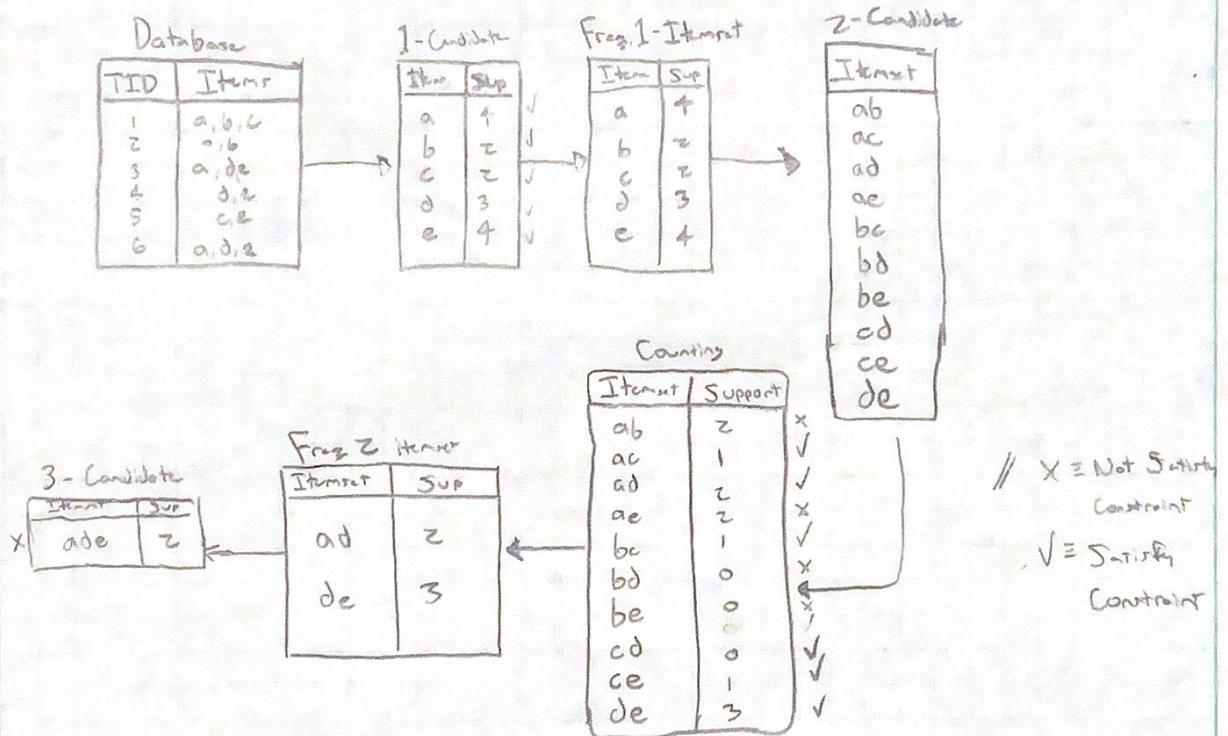 Database
TID Items
1 a, b, c
2 a, b
3 a, de
4 d, e
5 c, e
6 a, d, e
1-Candidate
Item Sup
a 4 ✓
b 2 ✓
c 2 ✓
d 3 ✓
e 4 ✓
Freq. 1-Itemset
Item Sup
a 4
b 2
c 2
d 3
e 4
2-Candidate
Itemset
ab
ac
ad
ae
bc
bd
be
cd
ce
de
Counting
Itemset Support
ab 2 x
ac 1 ✓
ad 2 ✓
ae 2 x
bc 1 ✓
bd 0 x
be 0 x
cd 0 ✓
ce 1 ✓
de 3 ✓
// x ≡ Not Satisfy
Constraint
✓ ≡ Satisfy
Constraint
Freq 2 itemset
Itemset Sup
ad 2
de 3
3-Candidate
Itemset Sup
x ade 2